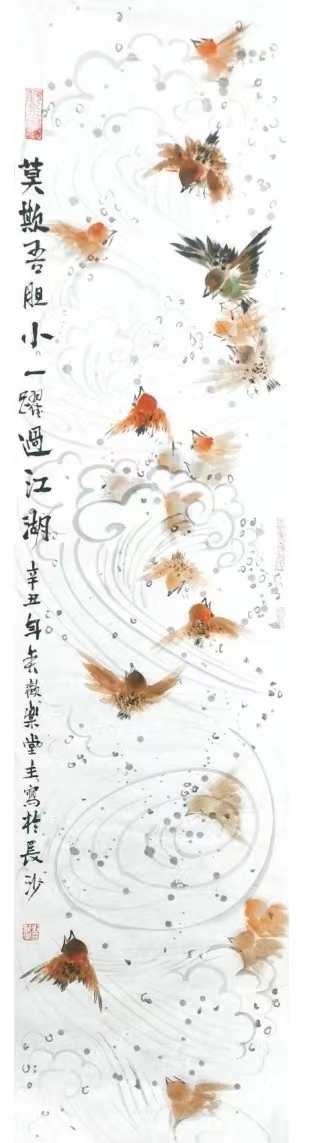 莫欺吾胆小一躍過江湖 辛丑年冬歡樂堂主寫於長沙